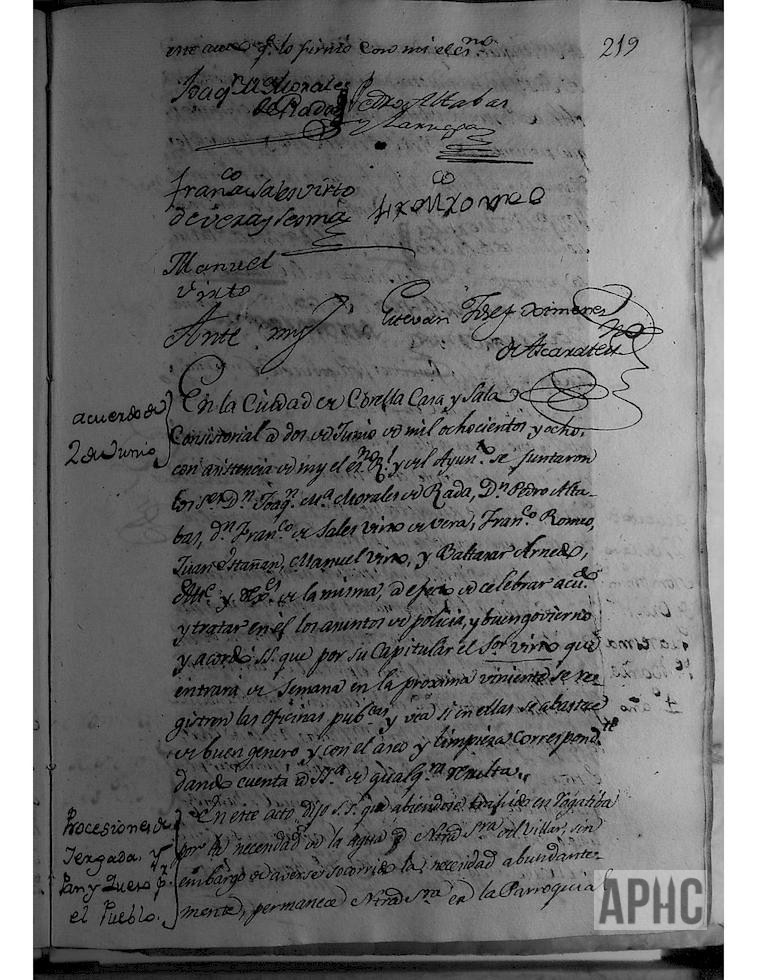 219
este auto q.e lo firmó Con mi el es.no
Joaq.n M.a Morales
de Rada
Pedro Altabas
y Larraga
Fran.co Sales Virto
de Vera y
Fr.co Romeo
Manuel
Virto
Estevan Josef Ximenez
de Ascarate
Ante my
acuerdo de
2 de Junio
En la Ciudad de Corella Casa y Sala
Consistorial a dos de Junio de mil ochocientos y ocho,
con asistencia de my el es.no R.l y del Ayun.to se juntaron
los S.res D.n Joaq.n M.a Morales de Rada, D.n Pedro Alta-
bas, d.n Fran.co de Sales Virto de Vera, Fran.co Romeo,
Juan Estañan, Manuel Virto, y Baltasar Arnedo,
Alc.e y de la misma, a efecto de celebrar acu.do
y tratar en él los asuntos de policia, y buen govierno
y acordó S.S. que por su Capitular el S.or Virto que
entrara de semana en la proxima viniente se re-
gistren las oficinas pub.cas y vea si en ellas se abastece
de buen genero y con el aseo y limpieza correspond.te
dando cuenta a S.S.a de qualq.ra resulta.
Procesiones de
Tergada y
Pan y Queso p.r
el Pueblo.
En este acto dijo S.S. que abiendose trahido en Rogatiba
por la necesidad de la agua a Ntra S.ra del Villar, sin
embargo de averse socorrido la necesidad abundante-
mente, permanece Ntra S.ra en la Parroquial
APHC